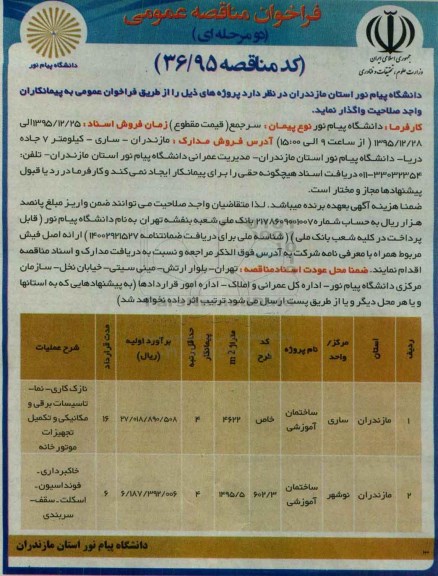 فراخوان مناقصه عمومی
(دو مرحله ای)
(کد مناقصه ۳۶/۹۵)
جمهوری اسلامی ایران
وزارت علوم، تحقیقات و فناوری
دانشگاه پیام نور
دانشگاه پیام نور استان مازندران در نظر دارد پروژه های ذیل را از طریق فراخوان عمومی به پیمانکاران
واجد صلاحیت واگذار نماید.
کارفرما : دانشگاه پیام نور نوع پیمان : سرجمع ( قیمت مقطوع ) زمان فروش اسناد : ۱۳۹۵/۱۲/۲۵ الی
۱۳۹۵/۱۲/۲۸ ( از ساعت ۹ الی ۱۵:۰۰) آدرس فروش مدارک : مازندران - ساری - کیلومتر ۷ جاده
دریا- دانشگاه پیام نور استان مازندران- مدیریت عمرانی دانشگاه پیام نور استان مازندران- تلفن:
۰۱۱-۳۳۰۳۲۳۵۴ دریافت اسناد هیچگونه حقی را برای پیمانکار ایجاد نمی کند و کارفرما در رد یا قبول
پیشنهادها مجاز و مختار است.
ضمنا هزینه آگهی بعهده برنده میباشد. لذا متقاضیان واجد صلاحیت می توانند ضمن واریز مبلغ پانصد
هزار ریال به حساب شماره ۲۱۷۸۶۰۹۰۰۱۰۰۷ بانک ملی شعبه بنفشه تهران به نام دانشگاه پیام نور ( قابل
پرداخت در کلیه شعب بانک ملی ) ( شناسه ملی برای دریافت ضمانتنامه ۱۴۰۰۲۹۲۱۵۲۷ ) ارائه اصل فیش
مربوط همراه با معرفی نامه شرکت به آدرس فوق الذکر مراجعه و نسبت به دریافت مدارک و اسناد مناقصه
اقدام نمایند. ضمنا محل عودت اسناد مناقصه : تهران- بلوار ارتش- مینی سیتی- خیابان نخل- سازمان
مرکزی دانشگاه پیام نور- اداره کل عمرانی و املاک - اداره امور قراردادها (به پیشنهادهایی که به استانها
و یا هر محل دیگر و یا از طریق پست ارسال می شود ترتیب اثر داده نخواهد شد)
ردیف استان مرکز/ واحد نام پروژه کد طرح متراژ m2 حداقل رتبه پیمانکار برآورد اولیه (ریال) مدت قرارداد شرح عملیات
۱ مازندران ساری ساختمان آموزشی خاص ۴۶۲۲ ۴ ۲۷/۰۱۸/۸۹۰/۵۰۸ ۱۶ نازک کاری- نما- تاسیسات برقی و مکانیکی و تکمیل تجهیزات موتورخانه
۲ مازندران نوشهر ساختمان آموزشی ۶۰۲/۳ ۱۳۹۵/۵ ۴ ۶/۱۸۷/۳۹۲/۰۰۶ ۶ خاکبرداری- فونداسیون- اسکلت- سقف- سربندی
دانشگاه پیام نور استان مازندران